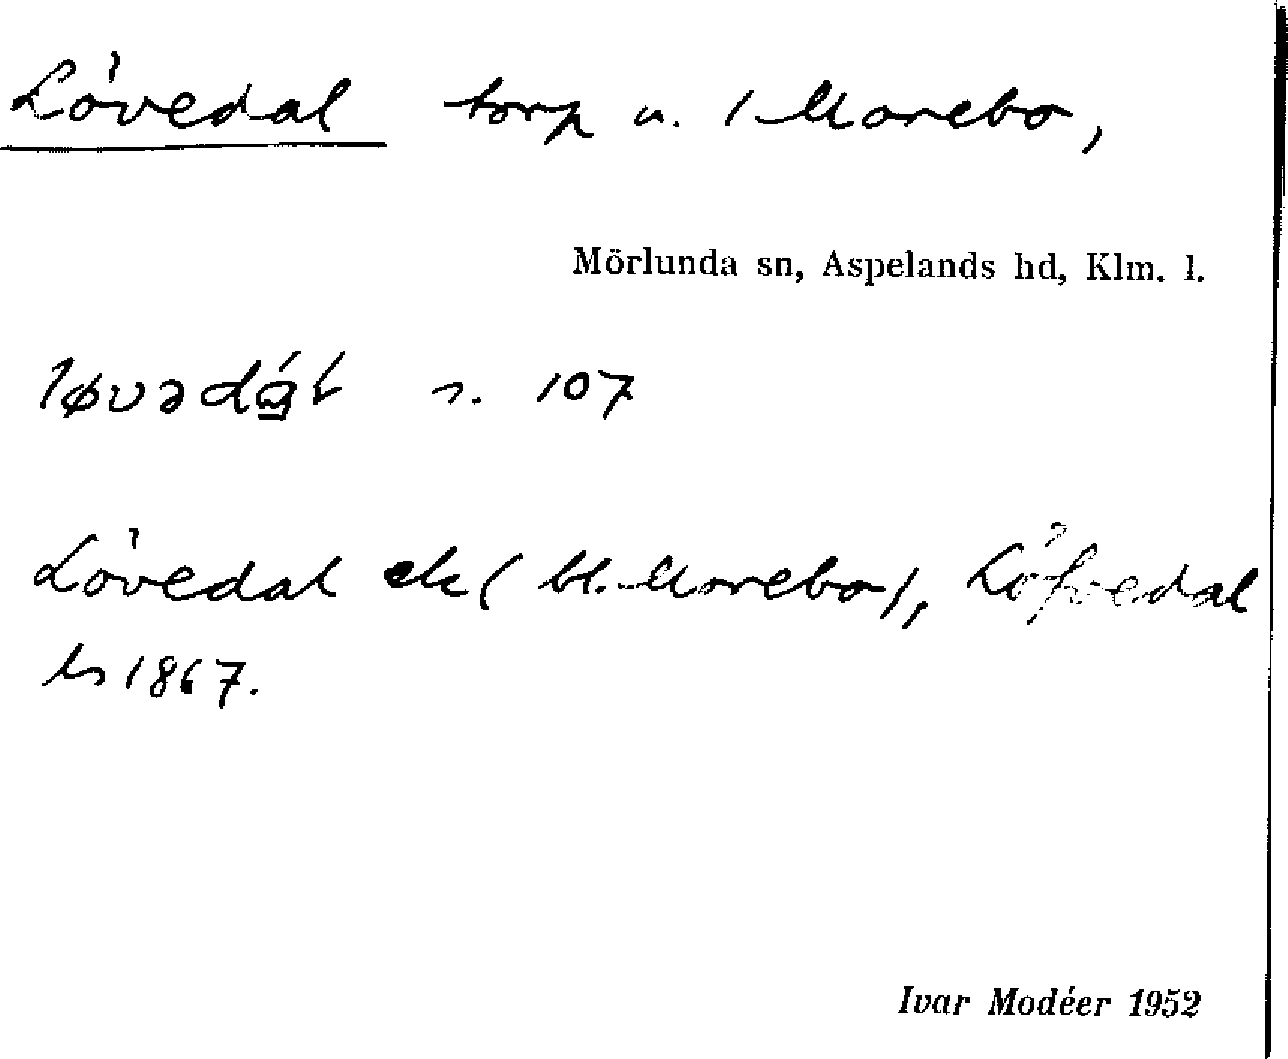 Lövedal torp u. 1 Morebo,
Mörlunda sn, Aspelands hd, Klm. l.
løvədál s. 107
Lövedal ek (bl. Morebo), Löfvedal
hs 1867.
Ivar Modéer 1952